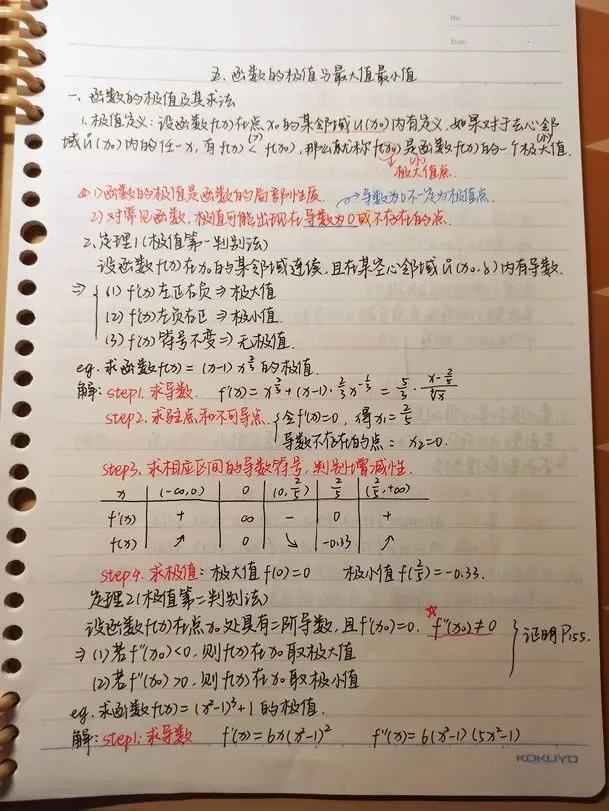 No.
Date
五. 函数的极值与最大值最小值
一、函数的极值及其求法
1. 极值定义：设函数f(x)在点x₀的某邻域U(x₀)内有定义，如果对于去心邻
域Ů(x₀)内的任一x，有f(x) < (>) f(x₀)，那么就称f(x₀)是函数f(x)的一个极大(小)值.
↓(小)
极大值点.
注 1) 函数的极值是函数的局部性质. → 导数为0不一定为极值点.
2) 对常见函数，极值可能出现在导数为0或不存在的点.
2、定理1（极值第一判别法）
设函数f(x)在x₀的某邻域连续，且在某空心邻域Ů(x₀,δ)内有导数.
⇒ { (1) f'(x)左正右负 ⇒ 极大值
(2) f'(x)左负右正 ⇒ 极小值.
(3) f'(x)符号不变 ⇒ 无极值.
eg. 求函数f(x) = (x-1) x^{2/3} 的极值.
解：step1. 求导数. f'(x) = x^{2/3} + (x-1)·2/3 x^{-1/3} = 5/3 · (x - 2/5)/∛x
step2. 求驻点和不可导点. { 令f'(x)=0，得x₁=2/5
导数不存在的点：x₂=0.
step3. 求相应区间的导数符号，判别增减性.
x | (-∞,0) | 0 | (0, 2/5) | 2/5 | (2/5, +∞)
f'(x) | + | ∞ | - | 0 | +
f(x) | ↗ | 0 | ↘ | -0.33 | ↗
step4. 求极值：极大值f(0)=0 极小值f(2/5)=-0.33.
定理2（极值第二判别法）
设函数f(x)在点x₀处具有二阶导数，且f'(x₀)=0. ☆ f''(x₀)≠0
⇒ (1) 若f''(x₀)<0，则f(x)在x₀取极大值 } 证明P155.
(2) 若f''(x₀)>0，则f(x)在x₀取极小值
eg. 求函数f(x) = (x²-1)³+1 的极值.
解：step1. 求导数 f'(x) = 6x(x²-1)² f''(x) = 6(x²-1)(5x²-1)
KOKUYO